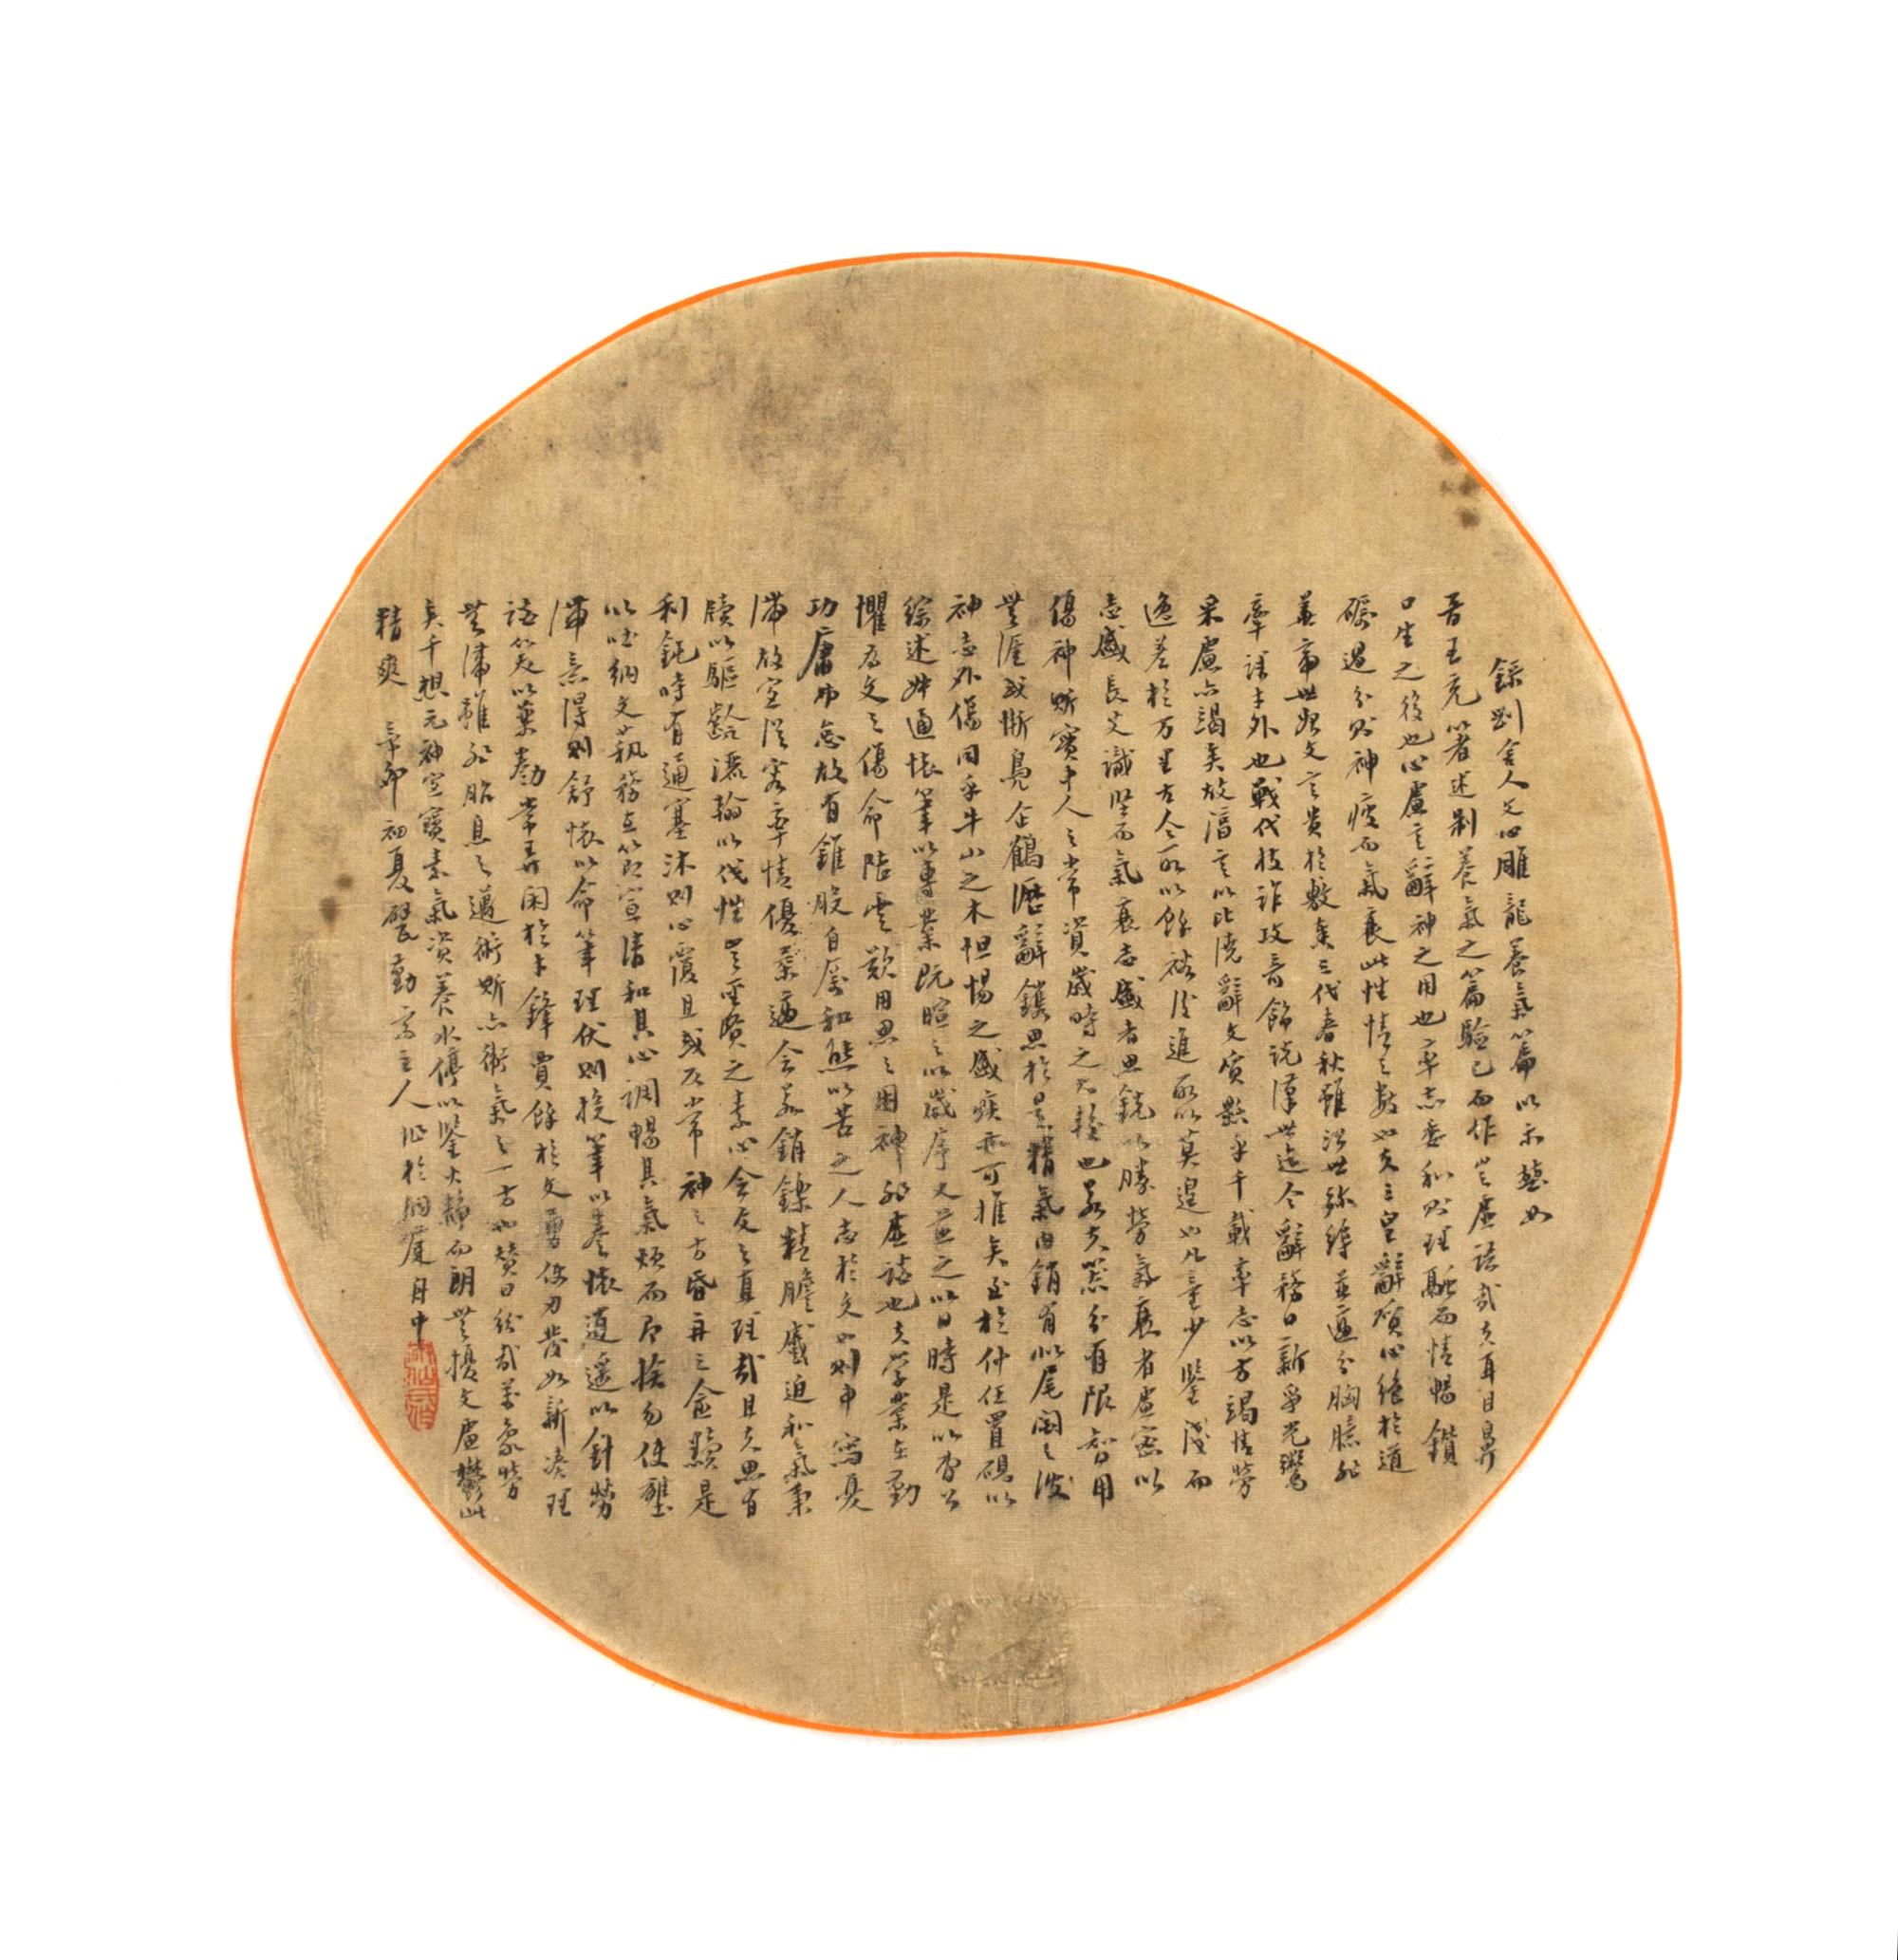 錄劉舍人文心雕龍養氣篇以示慧如
昔王充箸述制養氣之篇驗己而作豈虛語哉夫耳目鼻
口生之役也心慮言辭神之用也率志委和則理融而情暢鑽
礪過分則神疲而氣衰此性情之數也夫三皇辭質心絕於道
華帝世始文言貴於敷奏三代春秋雖沿世弥縟並適分胸臆非
牽課才外也戰代枝詐攻奇飾說漢世迄今辭務日新爭光鬻
采慮亦竭矣故淳言以比澆辭文質懸乎千載率志以方竭情勞
逸差於万里古人所以餘裕後進所以莫遑也凡童少鑒淺而
志盛長艾識堅而氣衰志盛者思銳以勝勞氣衰者慮密以
傷神斯實中人之常資歲時之大較也若夫器分有限智用
無涯或慚鳧企鶴瀝辭鐫思於是精氣內銷有似尾閭之波
神志外傷同乎牛山之木怛惕之盛疾亦可推矣至於仲任置硯以
綜述叔通懷筆以專業既暄之以歲序又煎之以日時是以曹公
懼為文之傷命陸雲歎用思之困神非虛談也夫學業在勤
功庸弗怠故有錐股自厲和熊以苦之人志於文也則申寫憂
滯故宜從容率情優柔適會若銷鑠精膽蹙迫和氣秉
牘以驅齡灑翰以伐性豈聖賢之素心會文之直理哉且夫思有
利鈍時有通塞沐則心覆且或反常神之方昏再三愈黷是
以吐納文藝務在節宣清和其心調暢其氣煩而即捨勿使壅
滯意得則舒懷以命筆理伏則投筆以卷懷逍遙以針勞
談笑以藥勌常弄閑於才鋒賈餘於文勇使刃發如新湊理
無滯雖非胎息之邁術斯亦衛氣之一方也贊曰紛哉萬象勞
矣千想元神宜寶素氣資養水停以鑒火靜而朗無擾文慮鬱此
精爽 辛卯初夏甓勤主人於舟中